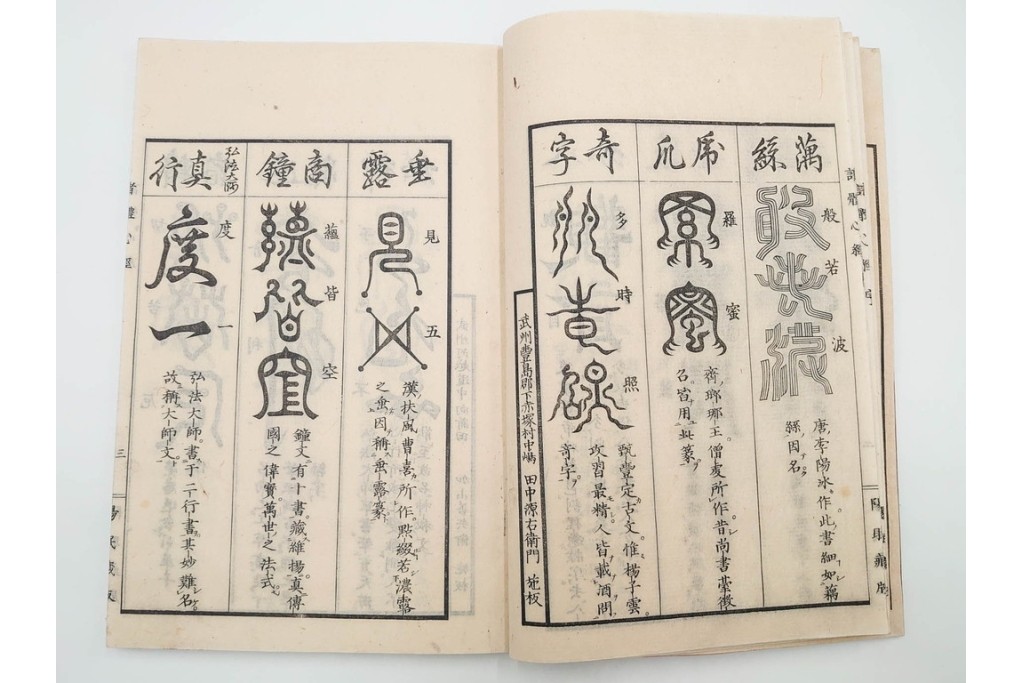 蕅絲
般若波
唐李陽氷作。此書細如藕
絲因名
虎爪
羅蜜
齊瑯琊王。僧虔所作。昔尚書臺徵
召皆用此篆。
奇字
多時照
甄豊定古文。惟楊子雲。
攻習最精。人皆載酒問
奇字。
武州豊島郡下赤塚村中嶋 田中源右衛門 施板
垂露
見五
漢扶風曹喜所作。點綴若濃露
之垂因稱垂露篆。
商鐘
蘊皆空
鐘文有十書。藏維揚。真傳
國之偉寶萬世之法式。
真行
弘法大師
度一
弘法大師。書于二行書。其妙難名。
故稱大師文。
諸體心經
三